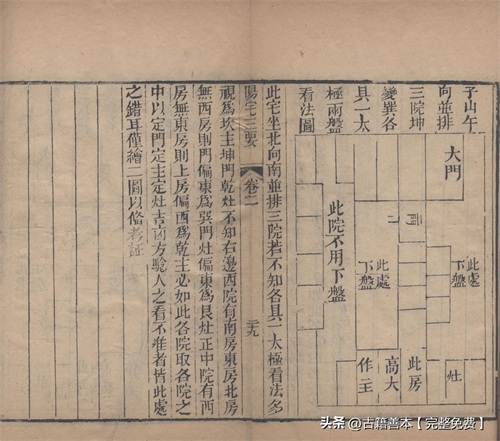 子山午
向並排
三院坤
變巽各
具一太
極兩盤
看法圖
大門
此處
下盤
此處
下盤
此院不用下盤
灶
此房
高大
作主
此宅坐北向南並排三院若不知各具一太極看法多
陽宅三要
卷二
視為坎主坤門乾灶不知右邊西院有南房東房北房
無西房則門偏東為巽門灶偏東為艮灶正中院有西
房無東房則上房偏酉為乾主必如此各院取各院之
中以定門定主定灶吉凶方驗人之看不准者皆此處
之錯耳僅繪二圖以俻考証
头条 @古籍善本【完整免费】